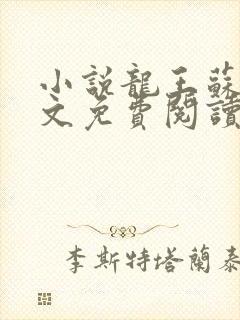 小說龍王蘇
文免費閱讀
李斯特塔蘭泰